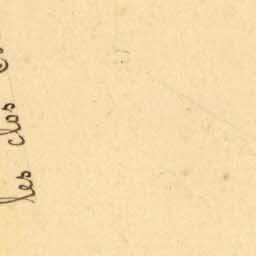 les clos